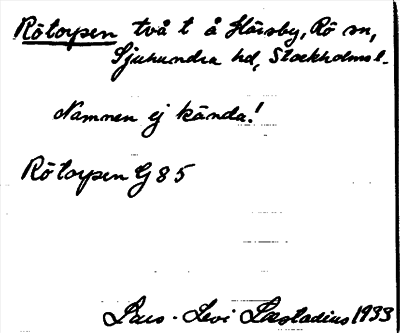 Rötorpen två t å Hårsby, Rö sn,
Sjuhundra hd, Stockholms l.
Namnen ej kända!
Rötorpen G 85
Lars-Levi Læstadius 1933